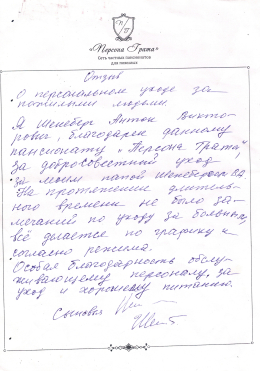 «Персона Грата»
Сеть частных пансионатов
для пожилых
Отзыв
о персональном уходе за
пожилыми людьми.
Я Шенебер Антон Викто-
рович, благодарен данному
пансионату „Персона Грата"
за добросовестный уход,
за моим папой
На протяжении длитель-
ного времени не было за-
мечаний по уходу за больным,
всё делается по графику и
согласно режима.
Особая благодарность обслу-
живающему персоналу, за
уход и хорошему питанию.
Сыновья